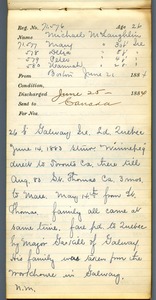 Reg. No. 71576 Age 26
Name Michael McLaughlin
71577 Mary
578 Delia
579 Peter
580
From Boston June 21 1884
Admitted
Discharged June 25 1884
Sent to Canada
For No.
26 fr Galway Ire. Ld. Quebec
June 14, 1883 Str "Winnifrey"
direct to Toronto Ca, there till
Aug. 83 St. Thomas Ca 3 mos
to Mass. May 15th from St.
Thomas family all came at
same time. fare pd to Quebec
by Major Gaskell of Galway
his family was taken from the
Workhouse in Galway.
N.M.